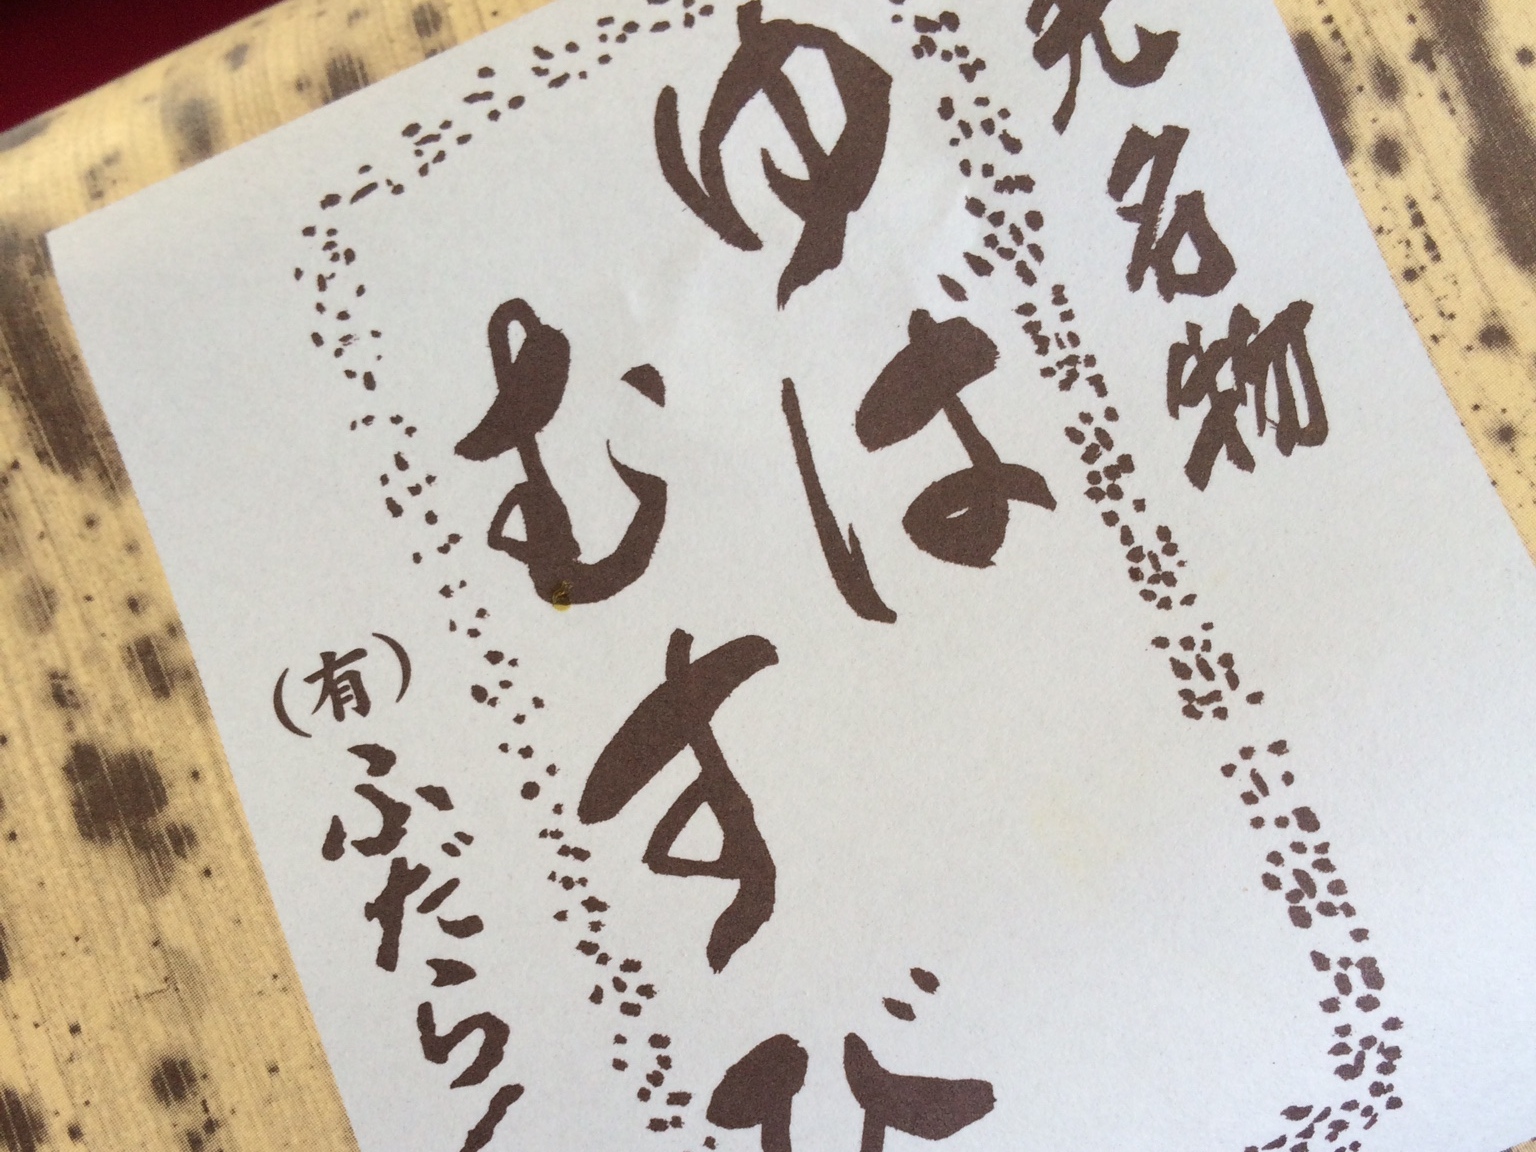 光名物
ゆは
むすび
(有)ふだら